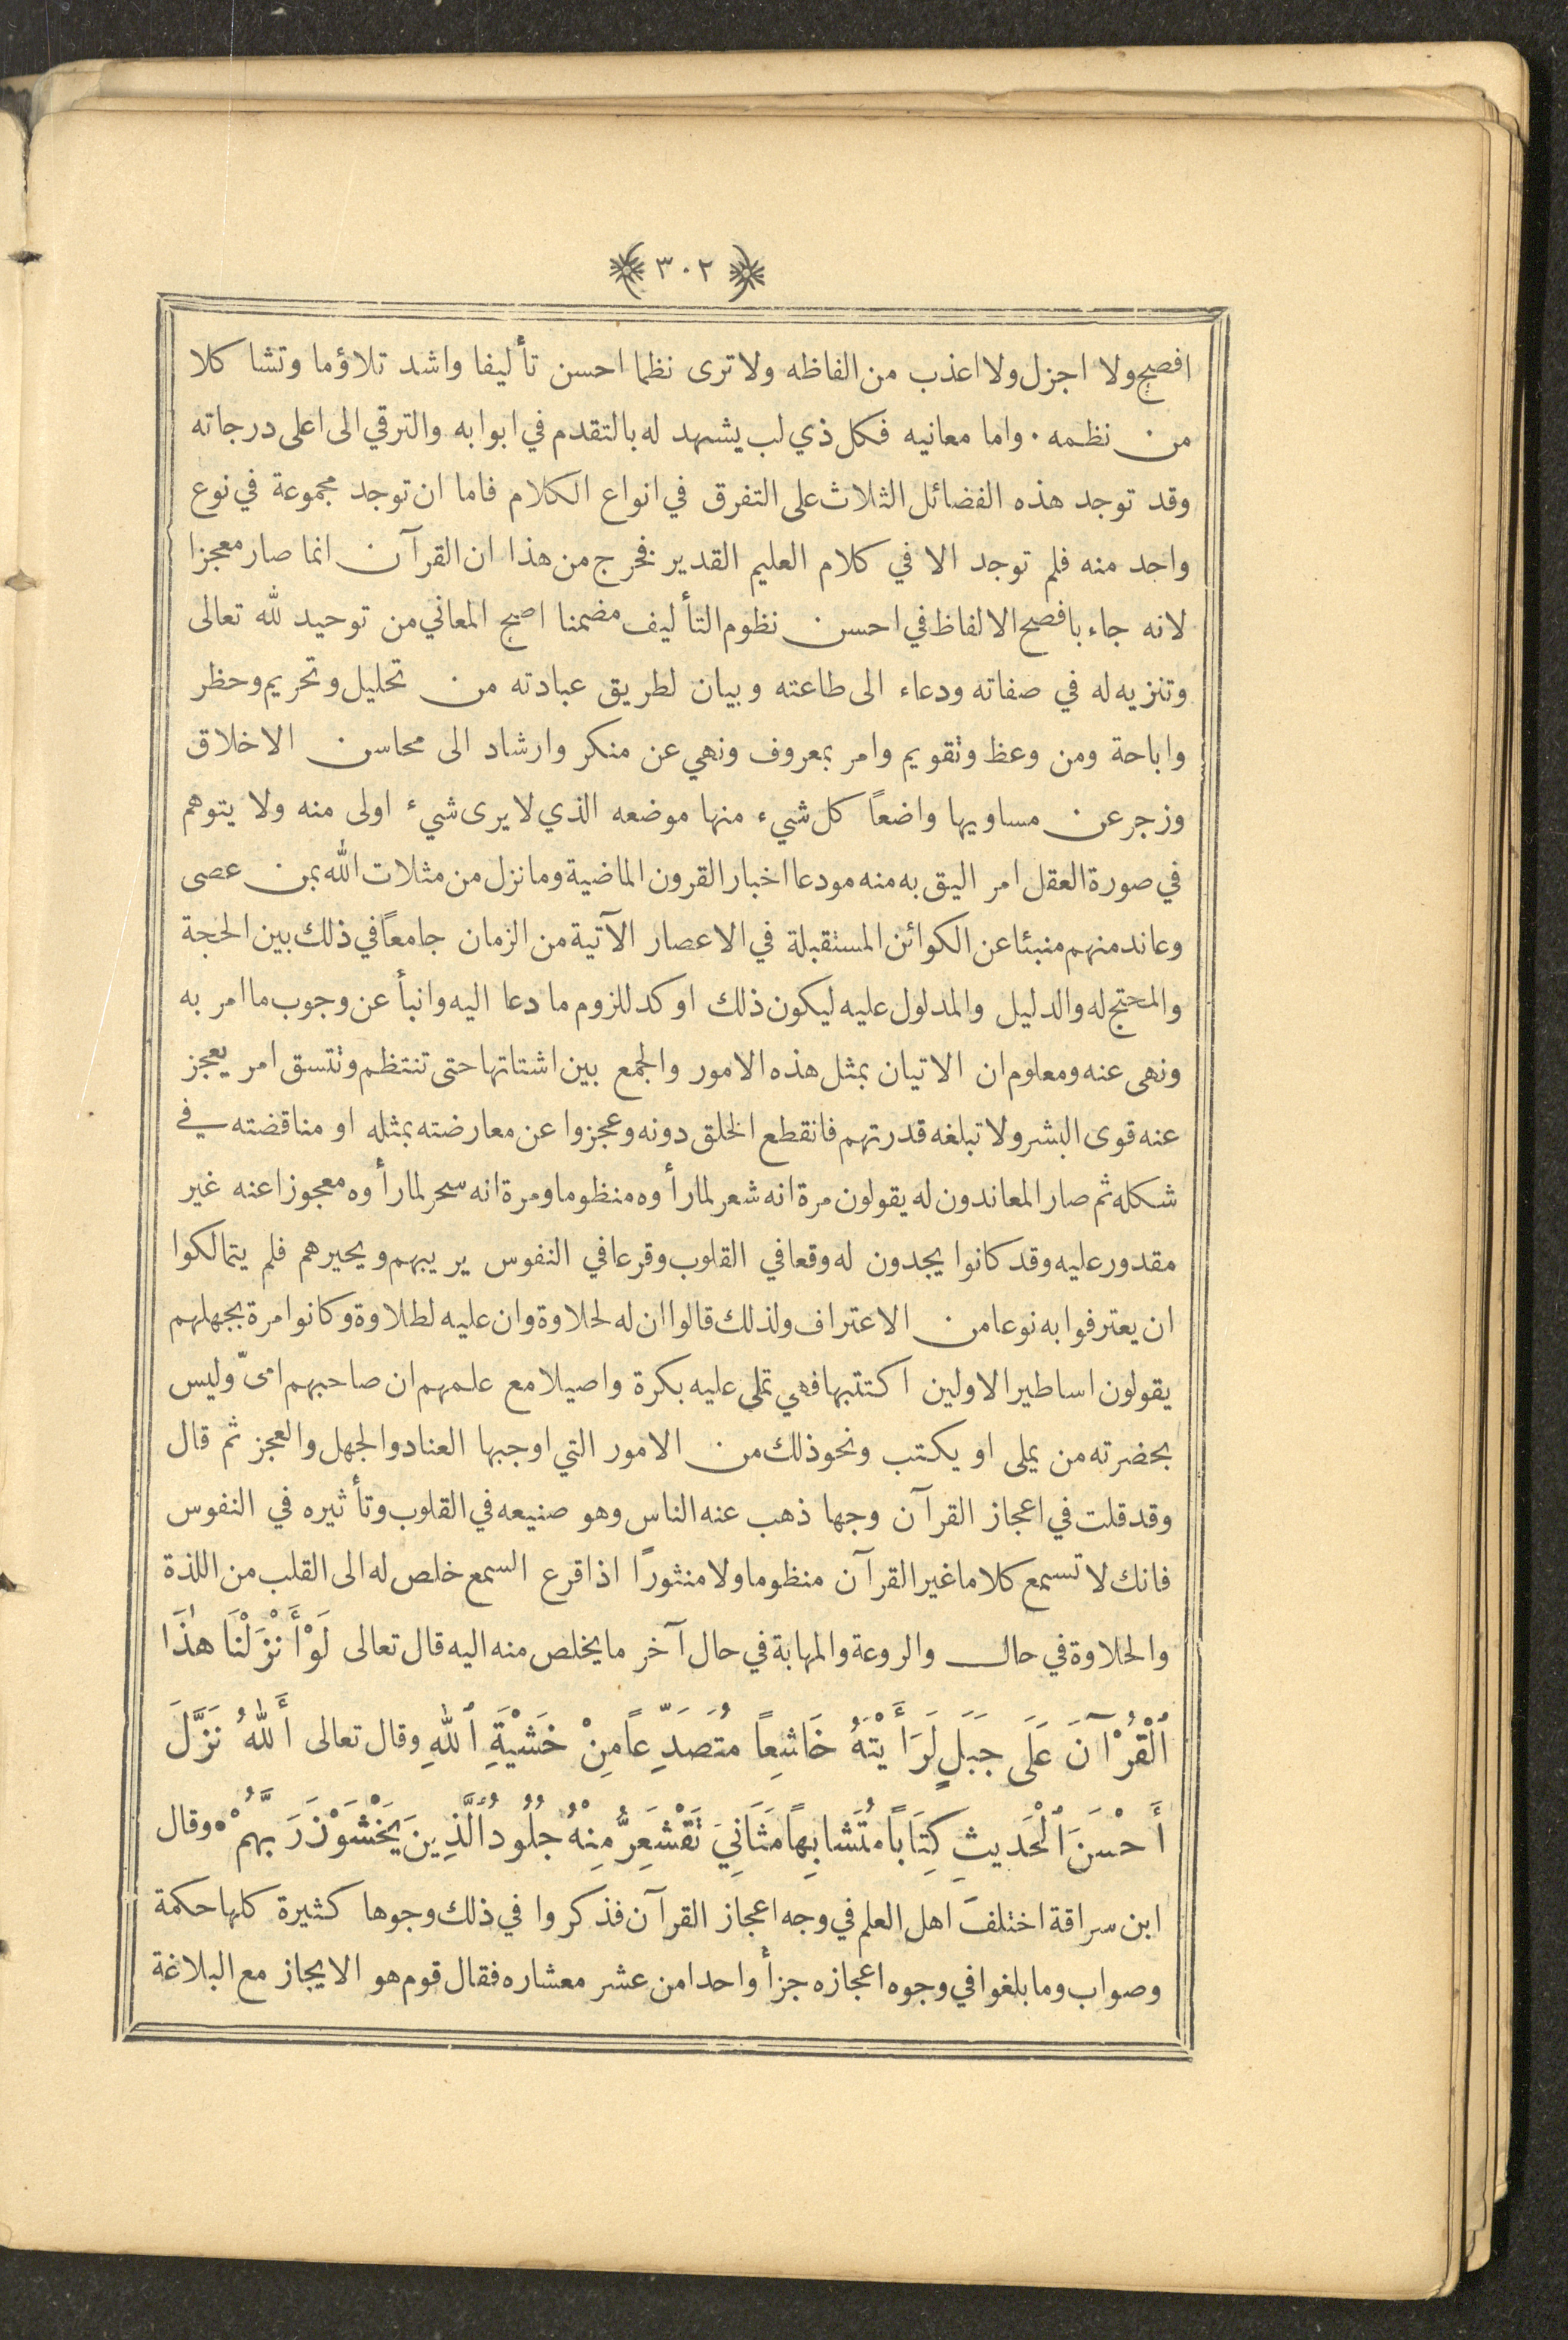 ٣٠٢
افصح ولا اجزل ولا اعذب من الفاظه ولا ترى نظما احسن تأليفا واشد تلاؤما وتشاكلا
من نظمه ٠ واما معانيه فكل ذي لب يشهد له بالتقدم في ابوابه والترقي الى اعلى درجاته
وقد توجد هذه الفضائل الثلاث على التفرق في انواع الكلام فاما ان توجد مجموعة في نوع
واحد منه فلم توجد الا في كلام العليم القدير فخرج من هذا ان القرآن انما صار معجزا
لانه جاء بافصح الالفاظ في احسن نظوم التأليف مضمنا اصح المعاني من توحيد لله تعالى
وتنزيه له في صفاته ودعاء الى طاعته وبيان لطريق عبادته من تحليل وتحريم وحظر
واباحة ومن وعظ وتقويم وامر بمعروف ونهي عن منكر وارشاد الى محاسن الاخلاق
وزجر عن مساويها واضعاً كل شيء منها موضعه الذي لا يرى شيء اولى منه ولا يتوهم
في صورة العقل امر اليق به منه مودعا اخبار القرون الماضية وما نزل من مثلات الله بمن عصى
وعاند منهم منبئا عن الكوائن المستقبلة في الاعصار الآتية من الزمان جامعاً في ذلك بين الحجة
والمحتج له والدليل والمدلول عليه ليكون ذلك اوكد للزوم ما دعا اليه وانبأ عن وجوب ما امر به
ونهى عنه ومعلوم ان الاتيان بمثل هذه الامور والجمع بين اشتاتها حتى تنتظم وتتسق امر يعجز
عنه قوى البشر ولا تبلغه قدرتهم فانقطع الخلق دونه وعجزوا عن معارضته بمثله او مناقضته في
شكله ثم صار المعاندون له يقولون مرة انه شعر لما رأوه منظوما ومرة انه سحر لما رأوه معجوزا عنه غير
مقدور عليه وقد كانوا يجدون له وقعا في القلوب وقرعا في النفوس يريبهم ويحيرهم فلم يتمالكوا
ان يعترفوا به نوعا من الاعتراف ولذلك قالوا ان له لحلاوة وان عليه لطلاوة وكانوا مرة بجهلهم
يقولون اساطير الاولين اكتتبها فهي تملى عليه بكرة واصيلا مع علمهم ان صاحبهم امىّ وليس
بحضرته من يملى او يكتب ونحو ذلك من الامور التي اوجبها العناد والجهل والعجز ثم قال
وقد قلت في اعجاز القرآن وجها ذهب عنه الناس وهو صنيعه في القلوب وتأثيره في النفوس
فانك لا تسمع كلاما غير القرآن منظوما ولا منثورًا اذا قرع السمع خلص له الى القلب من اللذة
والحلاوة في حال والروعة والمهابة في حال آخر ما يخلص منه اليه قال تعالى لَوْ أَنْزَلْنَا هٰذَا
ٱلْقُرْآنَ عَلَى جَبَلٍ لَرَأَيْتَهُ خَاشِعاً مُتَصَدِّعاً مِنْ خَشْيَةِ ٱللهِ وقال تعالى أَللهُ نَزَّلَ
أَحْسَنَ ٱلْحَدِيثِ كِتَاباً مُتَشَابِهاً مَثَانِيَ تَقْشَعِرُّ مِنْهُ جُلُودُ ٱلَّذِينَ يَخْشَوْنَ رَبَّهُمْ ٠ وقال
ابن سراقة اختلف اهل العلم في وجه اعجاز القرآن فذكروا في ذلك وجوها كثيرة كلها حكمة
وصواب وما بلغوا في وجوه اعجازه جزأ واحدا من عشر معشاره فقال قوم هو الايجاز مع البلاغة